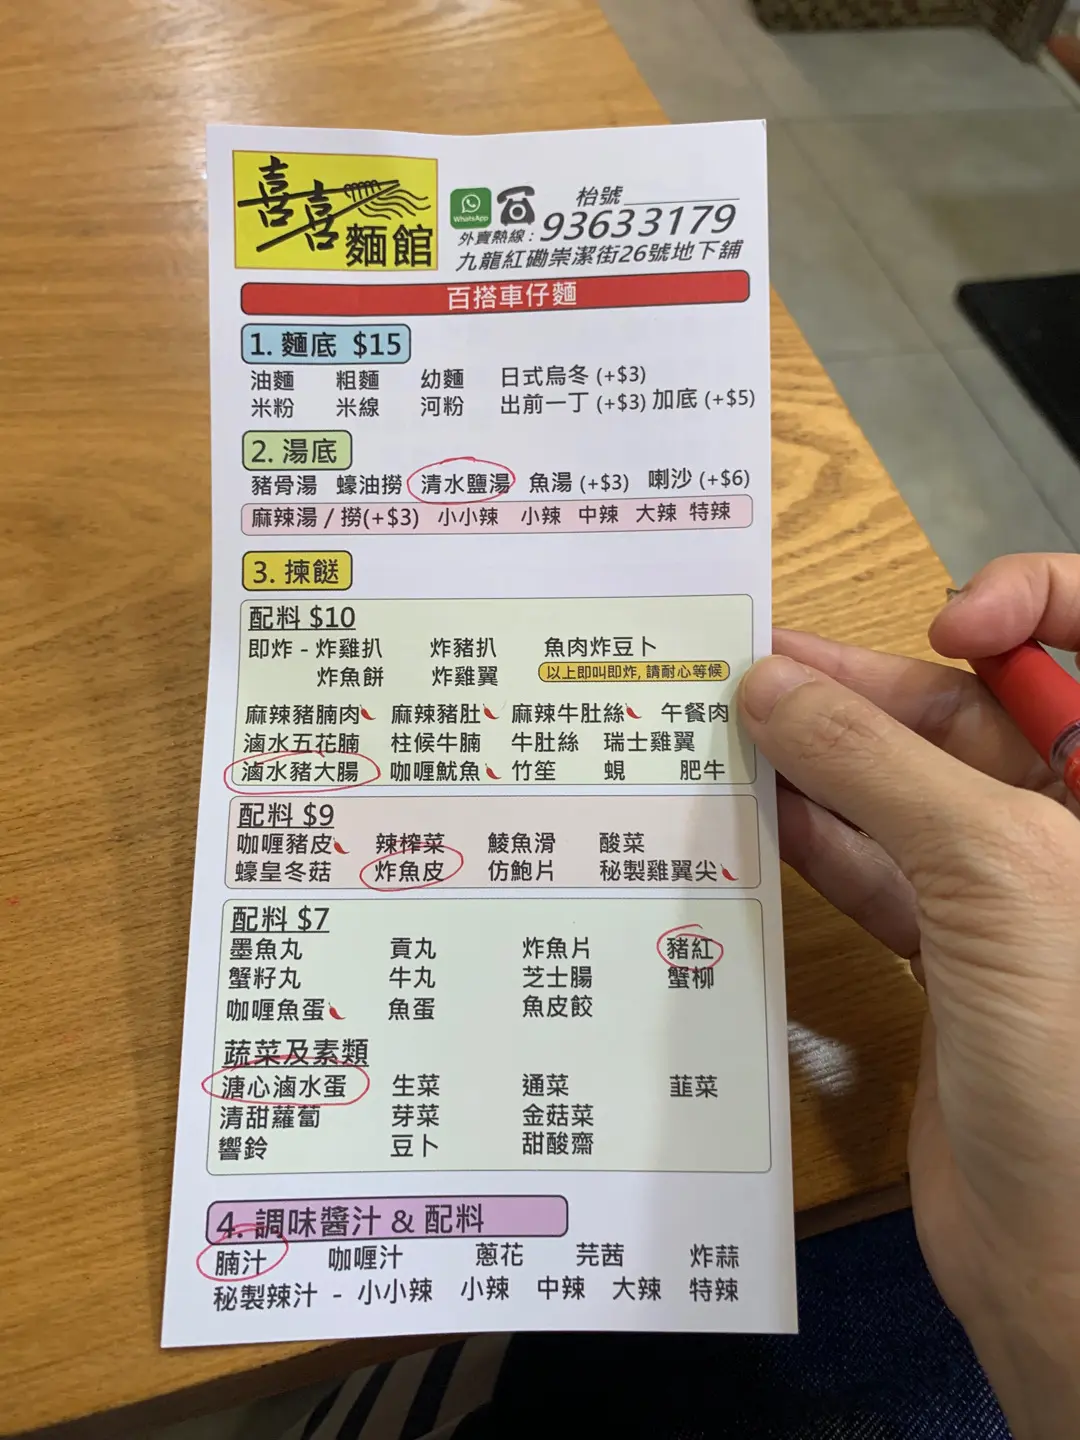 喜喜麵館
WhatsApp
枱號
外賣熱線：93633179
九龍紅磡崇潔街26號地下舖
百搭車仔麵
1. 麵底 $15
油麵 粗麵 幼麵 日式烏冬 (+$3)
米粉 米線 河粉 出前一丁 (+$3) 加底 (+$5)
2. 湯底
豬骨湯 蠔油撈 清水鹽湯 魚湯 (+$3) 喇沙 (+$6)
麻辣湯 / 撈(+$3) 小小辣 小辣 中辣 大辣 特辣
3. 揀餸
配料 $10
即炸 - 炸雞扒 炸豬扒 魚肉炸豆卜
炸魚餅 炸雞翼 以上即叫即炸, 請耐心等候
麻辣豬腩肉 麻辣豬肚 麻辣牛肚絲 午餐肉
滷水五花腩 柱候牛腩 牛肚絲 瑞士雞翼
滷水豬大腸 咖喱魷魚 竹笙 蜆 肥牛
配料 $9
咖喱豬皮 辣榨菜 鯪魚滑 酸菜
蠔皇冬菇 炸魚皮 仿鮑片 秘製雞翼尖
配料 $7
墨魚丸 貢丸 炸魚片 豬紅
蟹籽丸 牛丸 芝士腸 蟹柳
咖喱魚蛋 魚蛋 魚皮餃
蔬菜及素類
溏心滷水蛋 生菜 通菜 韮菜
清甜蘿蔔 芽菜 金菇菜
響鈴 豆卜 甜酸齋
4. 調味醬汁 & 配料
腩汁 咖喱汁 蔥花 芫茜 炸蒜
秘製辣汁 - 小小辣 小辣 中辣 大辣 特辣